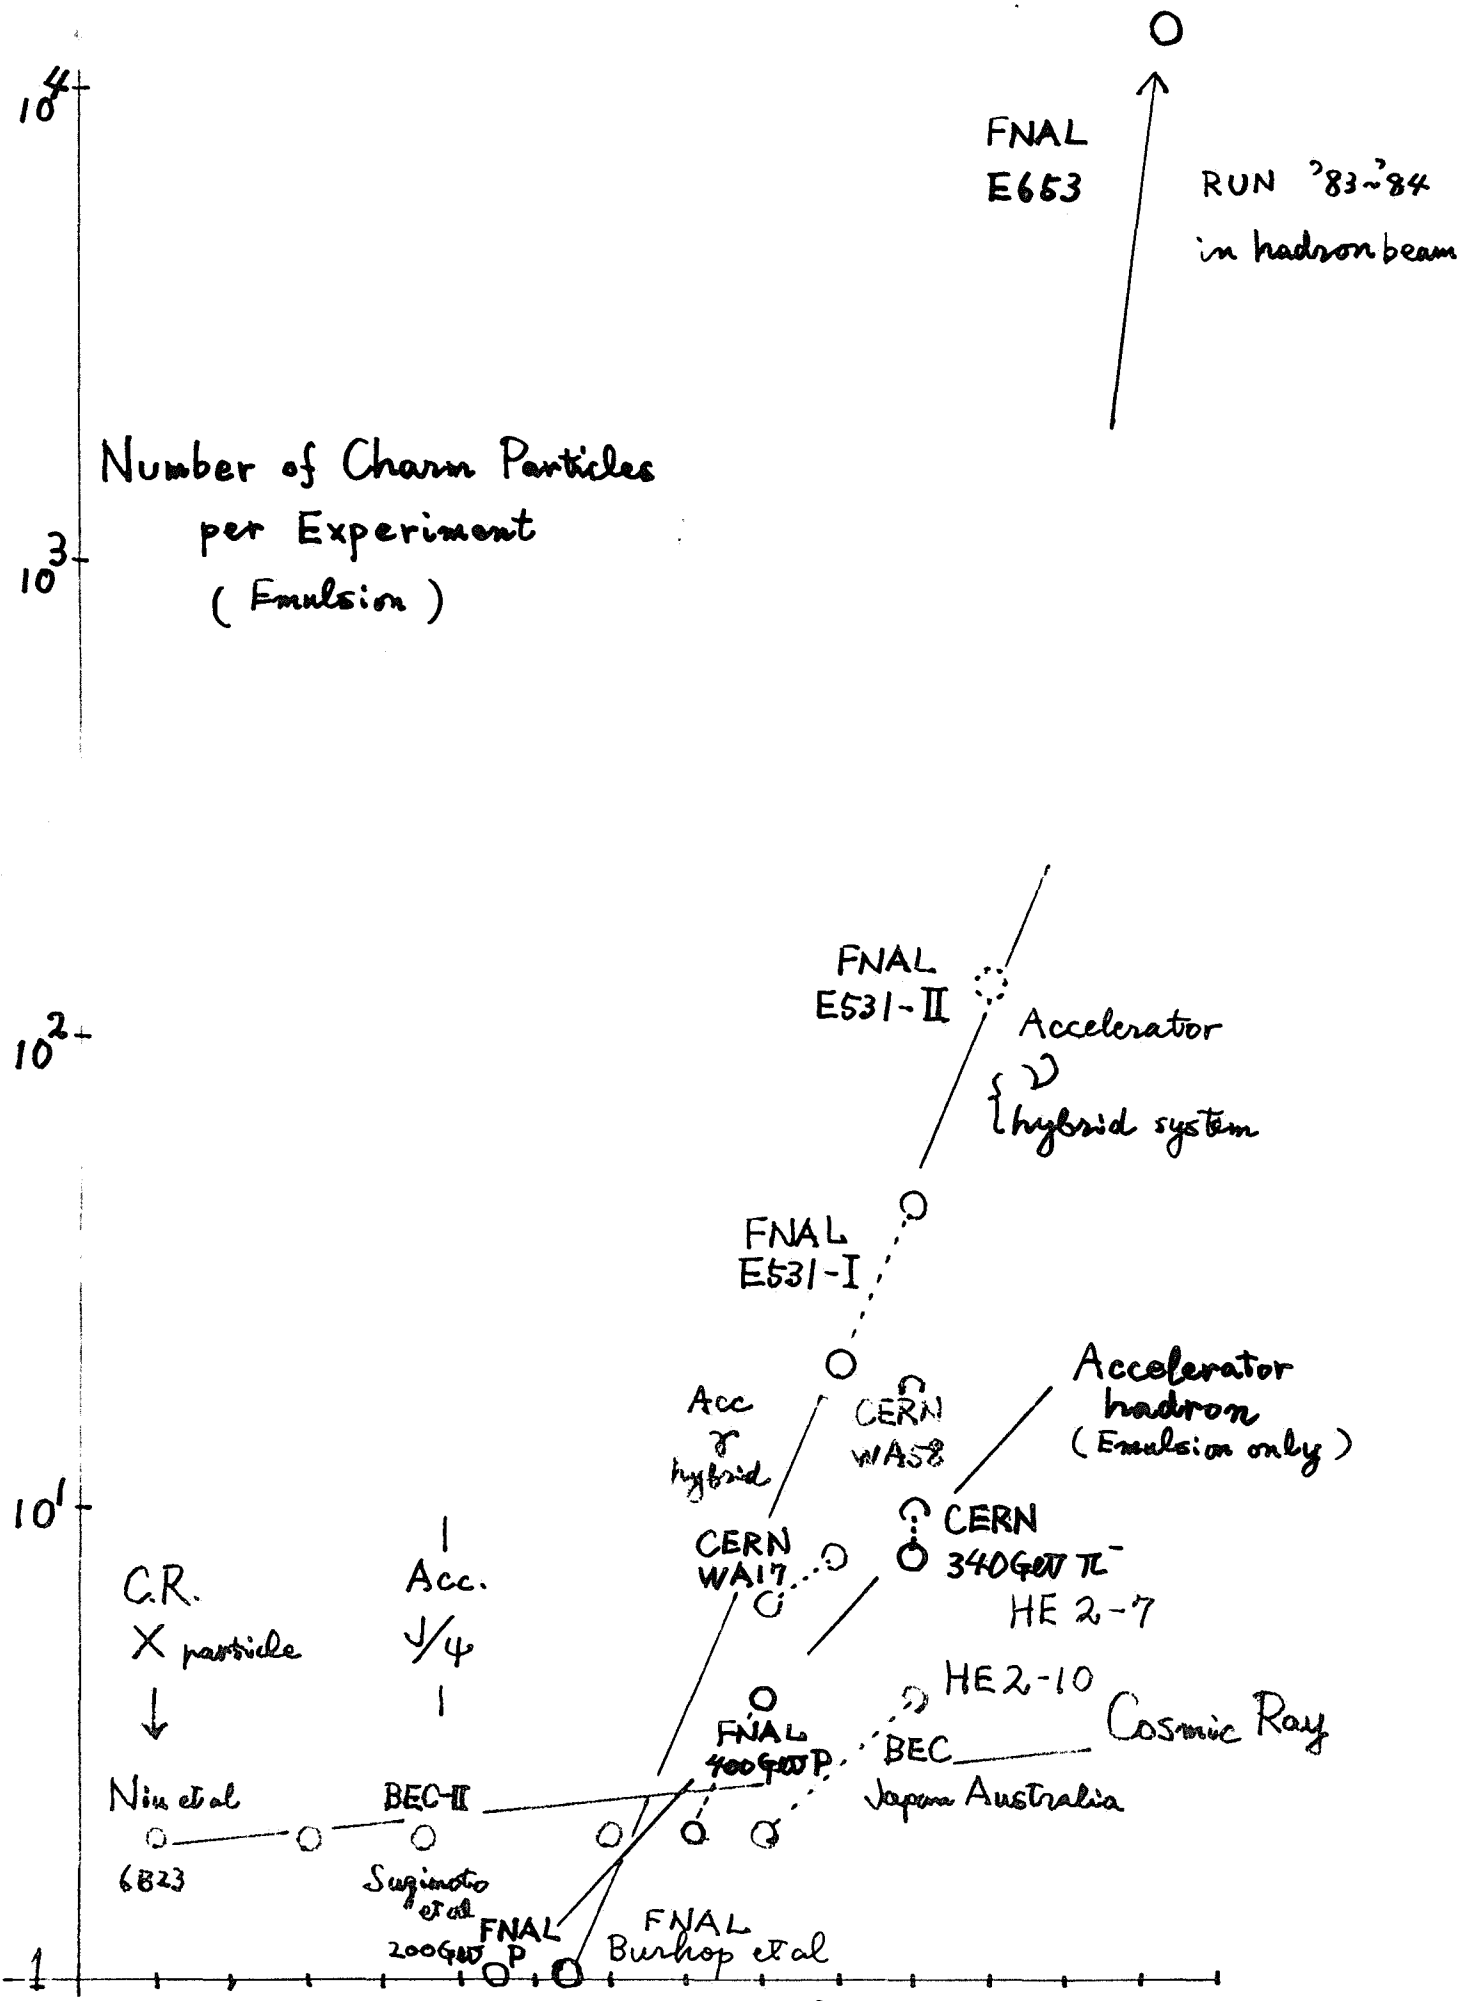 10⁴
FNAL
E653
RUN '83~'84
in hadron beam
Number of Charm Particles
per Experiment
( Emulsion )
10³
FNAL
E531-II
10²
Accelerator
{ ν
hybrid system
FNAL
E531-I
Accelerator
hadron
(Emulsion only)
Acc
γ
hybrid
CERN
WA58
10¹
CERN
340GeV π⁻
HE 2-7
CERN
WA17
C.R.
X particle
↓
Acc.
J/ψ
HE 2-10
Cosmic Ray
FNAL
400GeV P
BEC
Japan Australia
Niu et al
6B23
BEC-II
Sugimoto
et al
FNAL
200GeV P
FNAL
Burhop et al
1